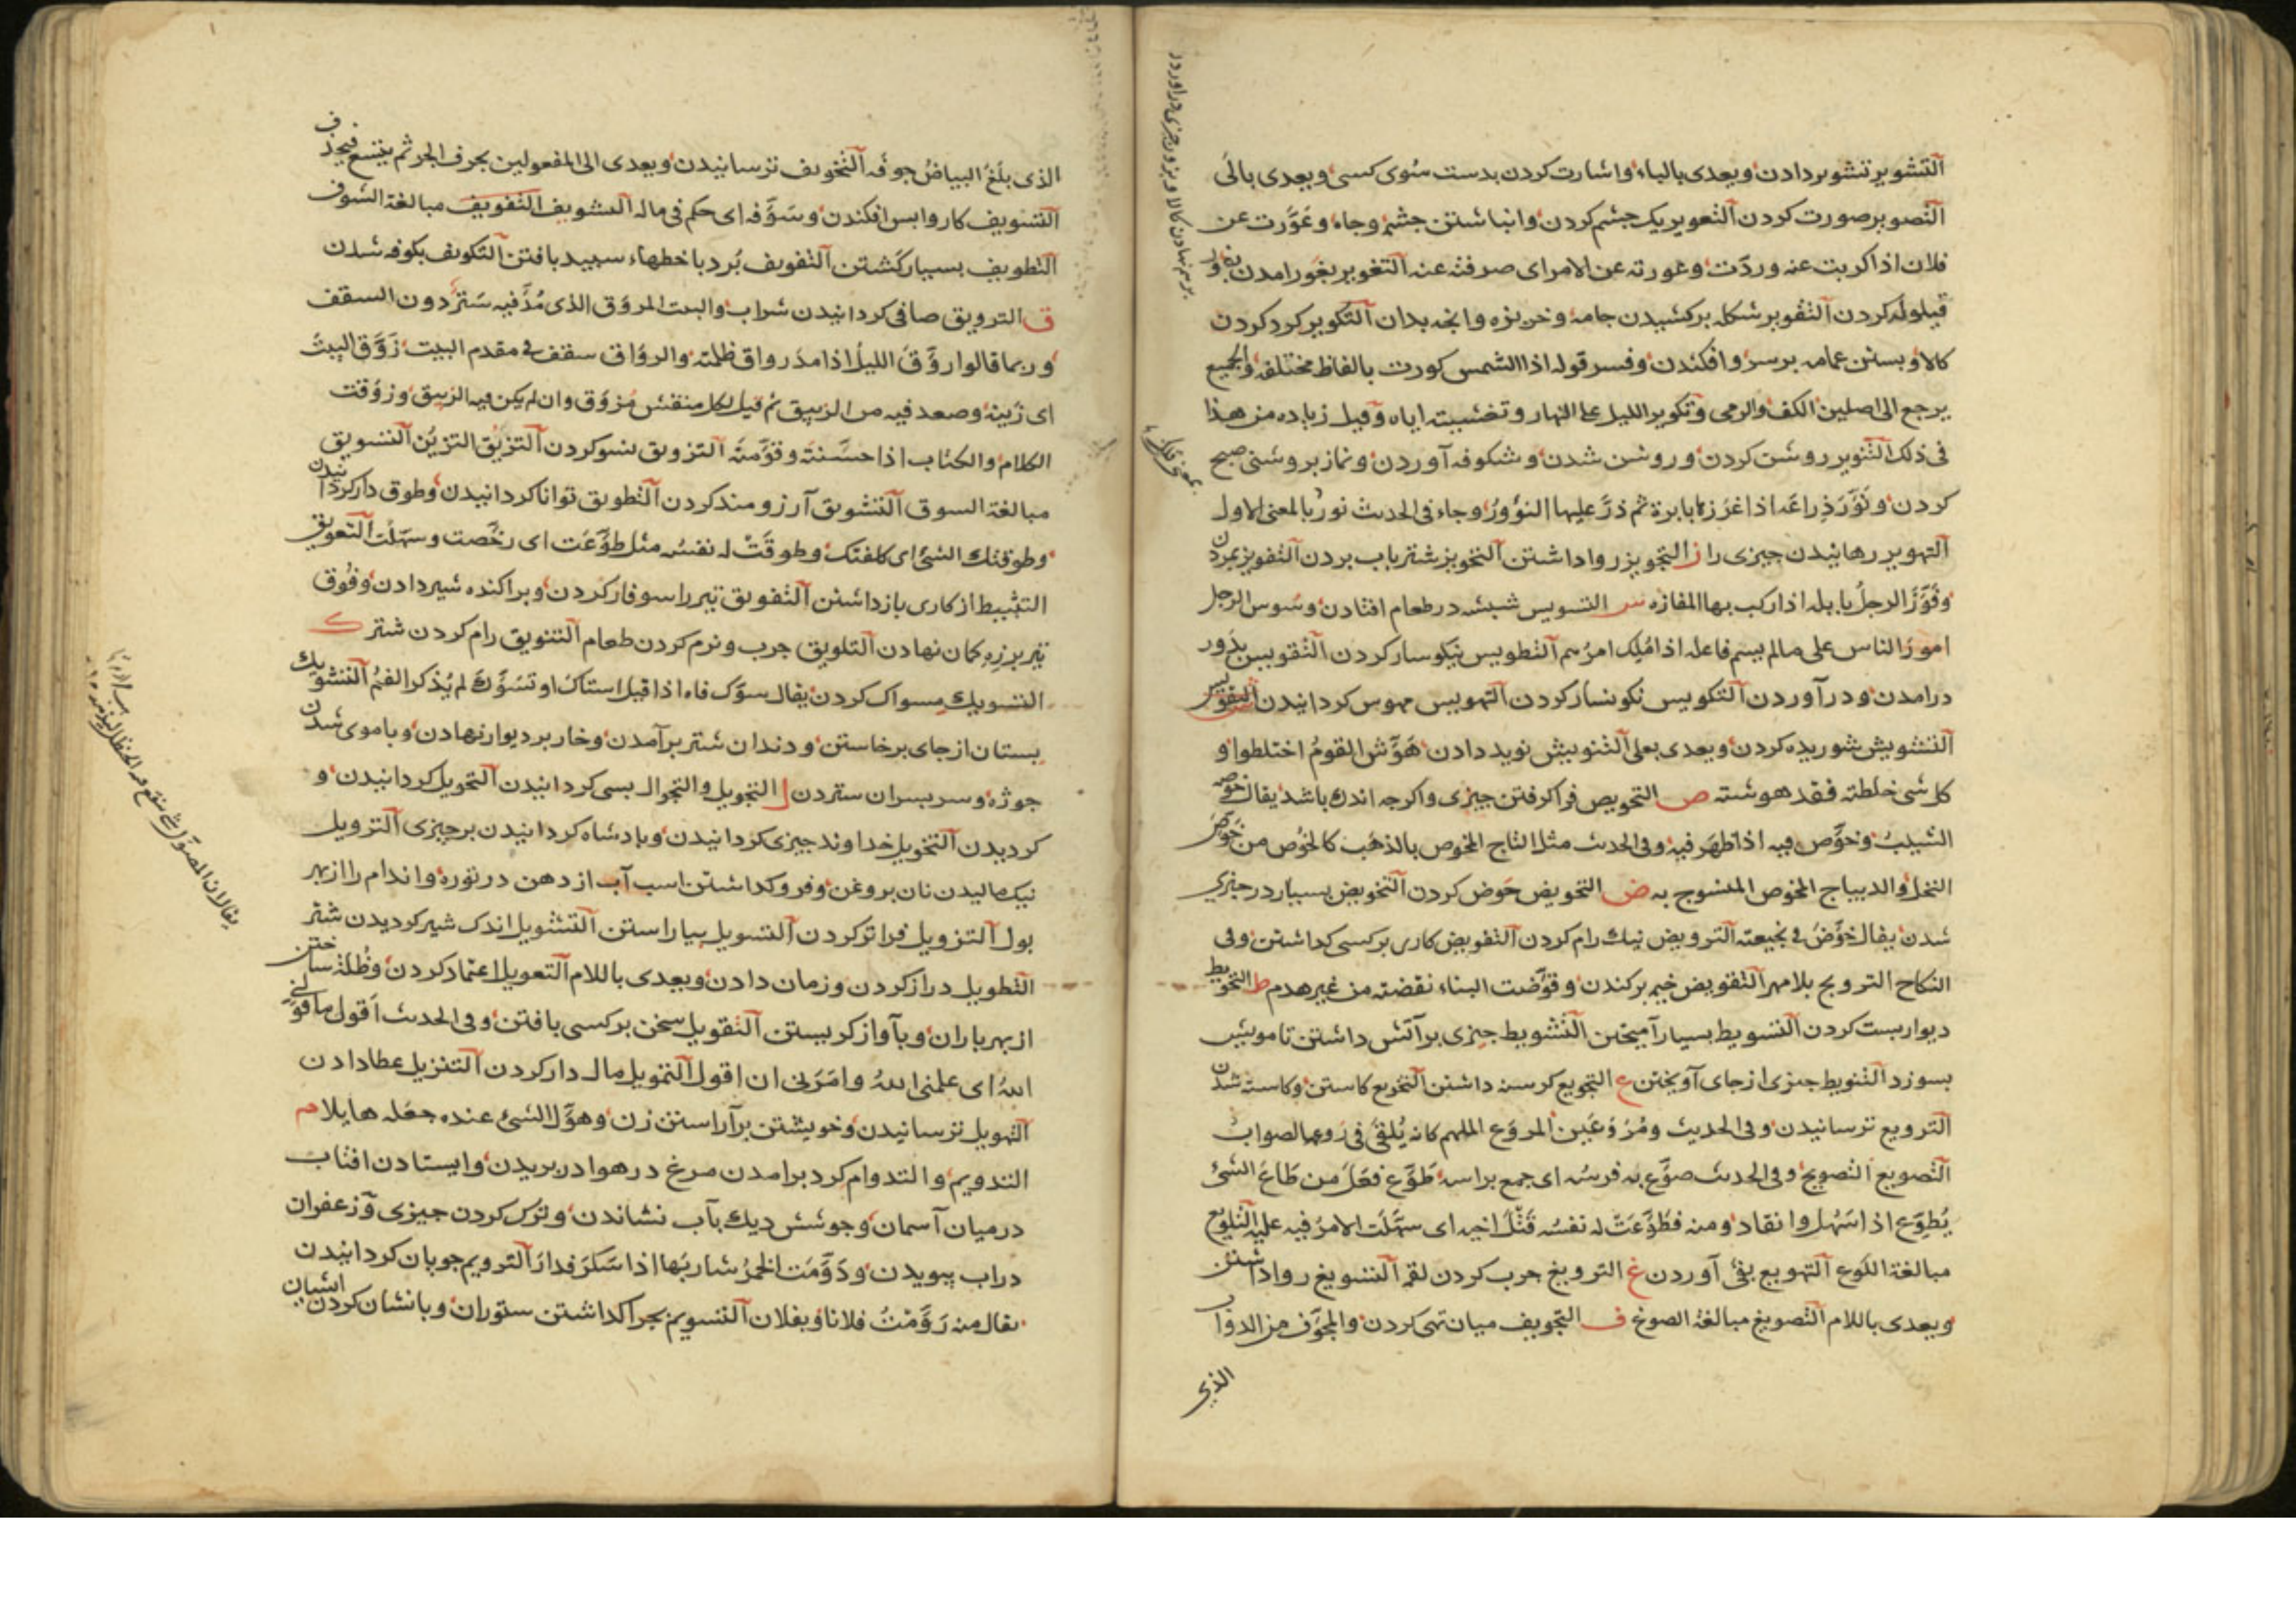 التشوير تشویر دادن ویعدی بالباء واشارت کردن بدست سوی کسی ویعدی بالی
التصویر صورت کردن التعویر یک چشم کردن وانباشتن چشم وجاه وعورت عن
فلان اذا کذبت عنه ورددت وعورته عن الامر ای صرفته عنه التغویر بغور امدن
قیلوله کردن التقویر شکله برکشیدن جامه وخربزه وانچه بدان التکویر کرد کردن
کالا وبستن عمامه بر سر وافکندن وفسر قوله اذا الشمس کورت بالفاظ مختلفة والجمیع
یرجع الی اصلین الکف والرمی وتکویر اللیل علی النهار وتغشیته ایاه وقیل زیاده من هذا
فی ذلک التنویر روشن کردن وروشن شدن وشکوفه آوردن ونماز بروشنی صبح
کردن ونور ذراعه اذا غرزها بابرة ثم ذر علیها النؤور وجاء فی الحدیث نور بالمعنی الاول
التهویر رهانیدن چیزی را ز التجویز روا داشتن التحویز شتر باب بردن التفویز بمردن
وفوز الرجل بابله اذا رکب بها المفازه س التسویس شبشه در طعام افتادن وسوس الرجل
امور الناس علی ما لم یسم فاعله اذا ملک امرهم التطویس نیکوسار کردن التقویس
درامدن ودرآوردن التکویس نکونسار کردن التهویس مهوس کردانیدن
التشویش شوریده کردن ویعدی بعلی التنویش نوید دادن هوش القوم اختلطوا و
کل شی خلطته فقد هوشته ص التخویص فرا کرفتن چیزی واکرچه اندک باشد یقال خوصه
الشیب وخوص فیه اذا ظهر فیه وفی الحدیث مثل التاج المخوص بالذهب کالخوص من خوص
النخل والدیباج المخوص المنسوج به ض التحویض حوض کردن التخویض بسیار در چیزی
شدن یقال خوض فی نجیعته الترویض نیک رام کردن التفویض کاری بر کسی کذاشتن وفی
النکاح التزویج بلا مهر التقویض خیمه برکندن وقوضت البناء نقضته من غیر هدم ط التحویط
دیوار بست کردن التسویط بسیار آمیختن التشویط چیزی بر آتش داشتن تا مویش
بسوزد التنویط چیزی از جای آویختن ع التجویع کرسنه داشتن التخویع کاستن وکاسته شدن
الترویع ترسانیدن وفی الحدیث ومروعین المروع الملهم کانه یلقی فی روعه الصواب
التصویع التصویح وفی الحدیث صوع به فرسه ای جمع براسه طوع فعل من طاع الشئ
یطوع اذا سهل وانقاد ومنه فطوعت له نفسه قتل اخیه ای سهلت الامر فیه علیه التلویع
مبالغة اللوع التهویع بقئ آوردن غ الترویغ چرب کردن لقمه التسویغ روا داشتن
ویعدی باللام التصویغ مبالغة الصوغ ف التجویف میان تهی کردن والمجوف من الدواب
الذی
الذی بلغ البیاض جوفه التخویف ترسانیدن ویعدی الی المفعولین بحرف الجر ثم یتسع فیحذف
التسویف کار واپس افکندن وسوفه ای حکم فی ماله التشویف التفویف مبالغة الشوف
التطویف بسیار کشتن التفویف برد با خطهاء سپید بافتن التکویف بکوفه شدن
ق الترویق صافی کردانیدن شراب والبیت المروق الذی مد فیه ستر دون السقف
وربما قالوا روق اللیل اذا مد رواق ظلمته والرواق سقف فی مقدم البیت زوق البیت
ای زینه وصعد فیه من الزیبق ثم قیل لکل منقش مزوق وان لم یکن فیه الزیبق وزوقت
الکلام والکتاب اذا حسنته وقومته التزویق نسو کردن التزیق التزین التسویق
مبالغة السوق التشویق آرزومند کردن التطویق توانا کردانیدن وطوق دار کردانیدن
وطوقتک الشئ ای کلفتک وطوقت له نفسه مثل طوعت ای رخصت وسهلت التعویق
التثبیط از کاری باز داشتن التفویق تیر را سوفار کردن وپراکنده شیر دادن وفوق
تیر بر زه کمان نهادن التلویق چرب ونرم کردن طعام التنویق رام کردن شتر ک
التسویک مسواک کردن یقال سوک فاه اذا قیل استاک او تسوک لم یذکر الفم التشویک
بستان از جای برخاستن ودندان شتر برآمدن وخار بر دیوار نهادن وبا موی شدن
جوژه وسر پسران ستردن ل التجویل والتجوال بسی کردانیدن التحویل کردانیدن و
کردیدن التخویل خداوند چیزی کردانیدن وپادشاه کردانیدن بر چیزی الترویل
نیک مالیدن نان بروغن وفرو کداشتن اسب آب از دهن در توره واندام را از بهر
بول التزویل فراتر کردن التسویل بیاراستن التشویل اندک شیر کردیدن شتر
التطویل دراز کردن وزمان دادن ویعدی باللام التعویل اعتماد کردن وظلة ساختن
از بهر باران وبآواز کریستن التقویل سخن بر کسی بافتن وفی الحدیث اقول ما قولنی
الله ای علمنی الله وامرنی ان اقول التمویل مال دار کردن التنزیل عطا دادن
التهویل ترسانیدن وخویشتن برآراستن زن وهول الشئ عنده جعله هایلا م
التدویم والتدوام کرد برامدن مرغ در هوا در پریدن وایستادن افتاب
در میان آسمان وجوشش دیک بآب نشاندن وترک کردن چیزی وزعفران
دراب پبویدن ودومت الخمر شاربها اذا سکر فدار الترویم جوبان کردانیدن
یقال منه رومت فلانا وبفلان التسویم بچرا کداشتن ستوران وبا نشان کردن ایشان